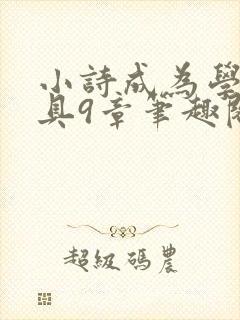 小詩成為學
具9章筆趣閣
超級碼農